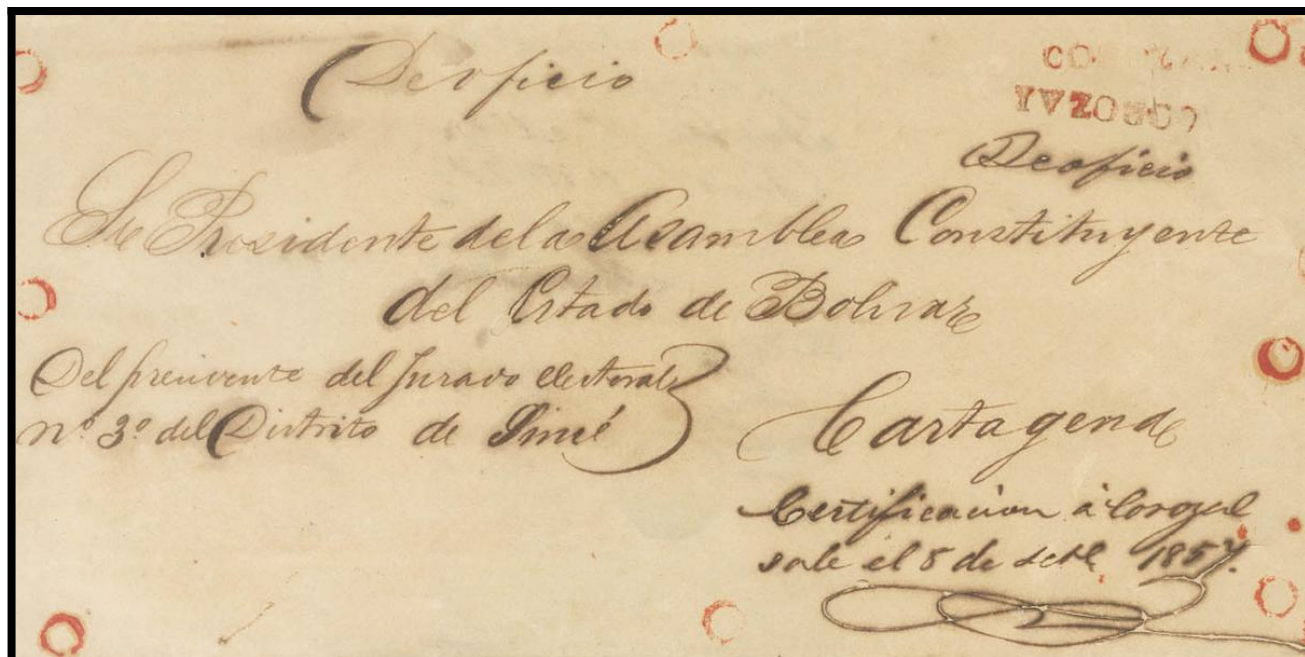 De oficio
COROZAL
De oficio
Sr Presidente de la Asamblea Constituyente
del Estado de Bolivar
Del presidente del Jurado electoral
nº 3º del Distrito de Sincé
Cartagena
Certificacion á Corozal
sale el 8 de setе 1857.